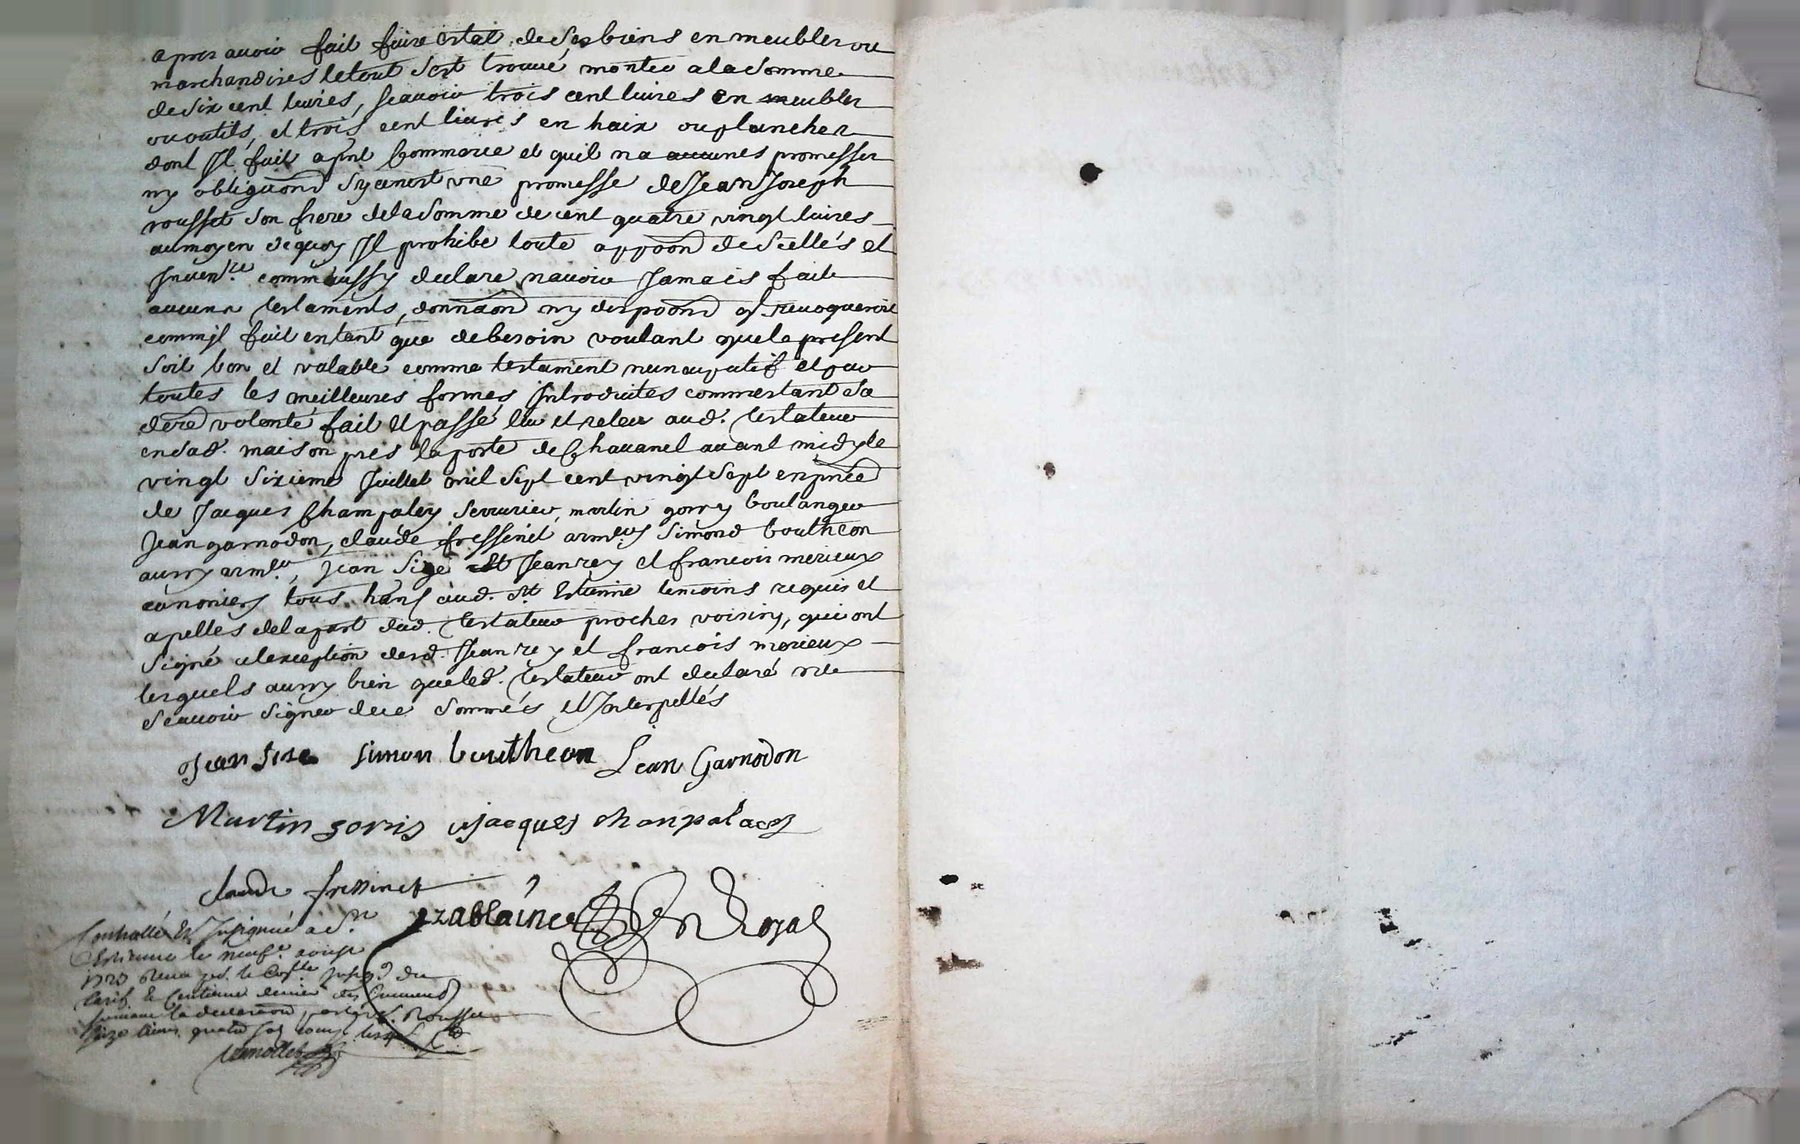 apres avoir fait faire estat de ses biens en meubles ou
marchandises le tout s'est trouué monter a la somme
de six cent liures, scauoir trois cent liures en meubles
ou outils, et trois cent liures en haix ou planches
dont Il fait a pnt Commerce et quil na aucunes promesses
ny obligaōns sy ce nest une promesse de Jean Joseph
rousset son frere de la somme de cent quatre vingt liures
au moyen de quoy Il prohibe toute appōon de scellés et
Inuenre comm'aussy declare nauoir Jamais fait
aucuns testaments, donnāon ny dispoōn
comm'il fait en tant que de besoin voulant que le present
soit bon et valable comme testament nuncupatif et par
toutes les meilleures formes Introduites comm'estant sa
dere volonté fait et passé leu et releu aud. testateur
en sad. maison pres la porte de Chauanel auant midy le
vingt sixieme Juillet mil sept cent vingt sept en pnce
de Jacques Champaley serrurier, martin gorry boulanger
Jean garnodon, claude fressinet armeurs simond boutheon
aussy armeur, Jean size Jean rey et francois merieux
canoniers tous hants aud. St Estienne temoins requis et
apellés de la part dud. testateur proches voisins, qui ont
signé a l'exception desd. Jean rey et francois merieux
lesquels aussy bien que led. testateur ont declaré ne
scauoir signer de ce sommés et Interpellés
Jean size simon boutheon Jean Garnodon
Martin gorris Jacques chanpalaey
claude fressinet
Controllé Et Insignué a St
Estienne le neufe
1729 Receu le
tarif & Centieme denier des Immeub
suiuant la declaraōn Rousset
seize liures quatre sols